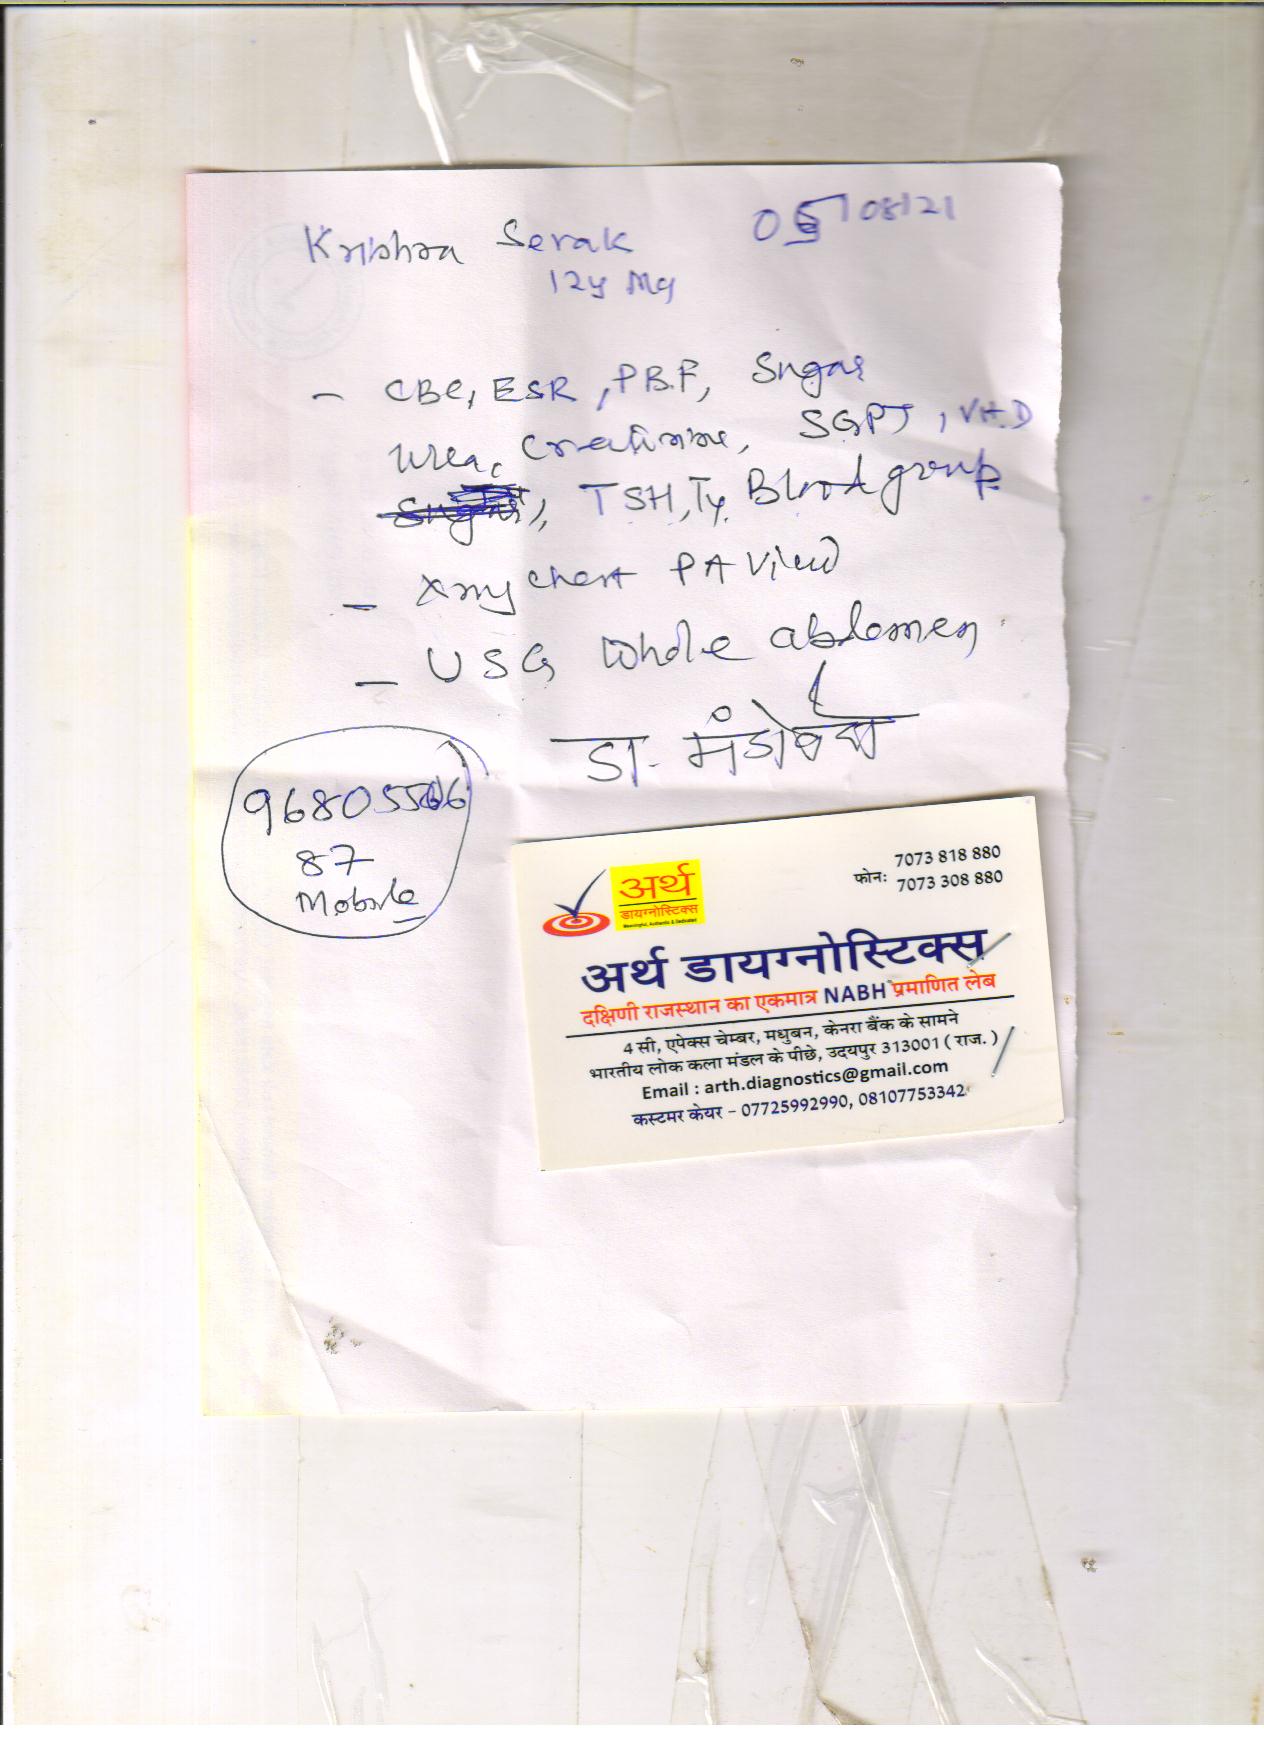 Krishna Sevak 05/08/21
12y
- CBC, ESR, P.B.F, Sugar
Urea, Creatinine, SGPT, Vit.D
TSH, T4, Blood group
- Xray chest PA View
- USG Whole abdomen
डा.
96805506
87
Mobile
अर्थ
डायग्नोस्टिक्स
Meaningful, Authentic & Dedicated
फोन: 7073 818 880
7073 308 880
अर्थ डायग्नोस्टिक्स
दक्षिणी राजस्थान का एकमात्र NABH प्रमाणित लेब
4 सी, एपेक्स चेम्बर, मधुबन, केनरा बैंक के सामने
भारतीय लोक कला मंडल के पीछे, उदयपुर 313001 ( राज. )
Email : arth.diagnostics@gmail.com
कस्टमर केयर - 07725992990, 08107753342